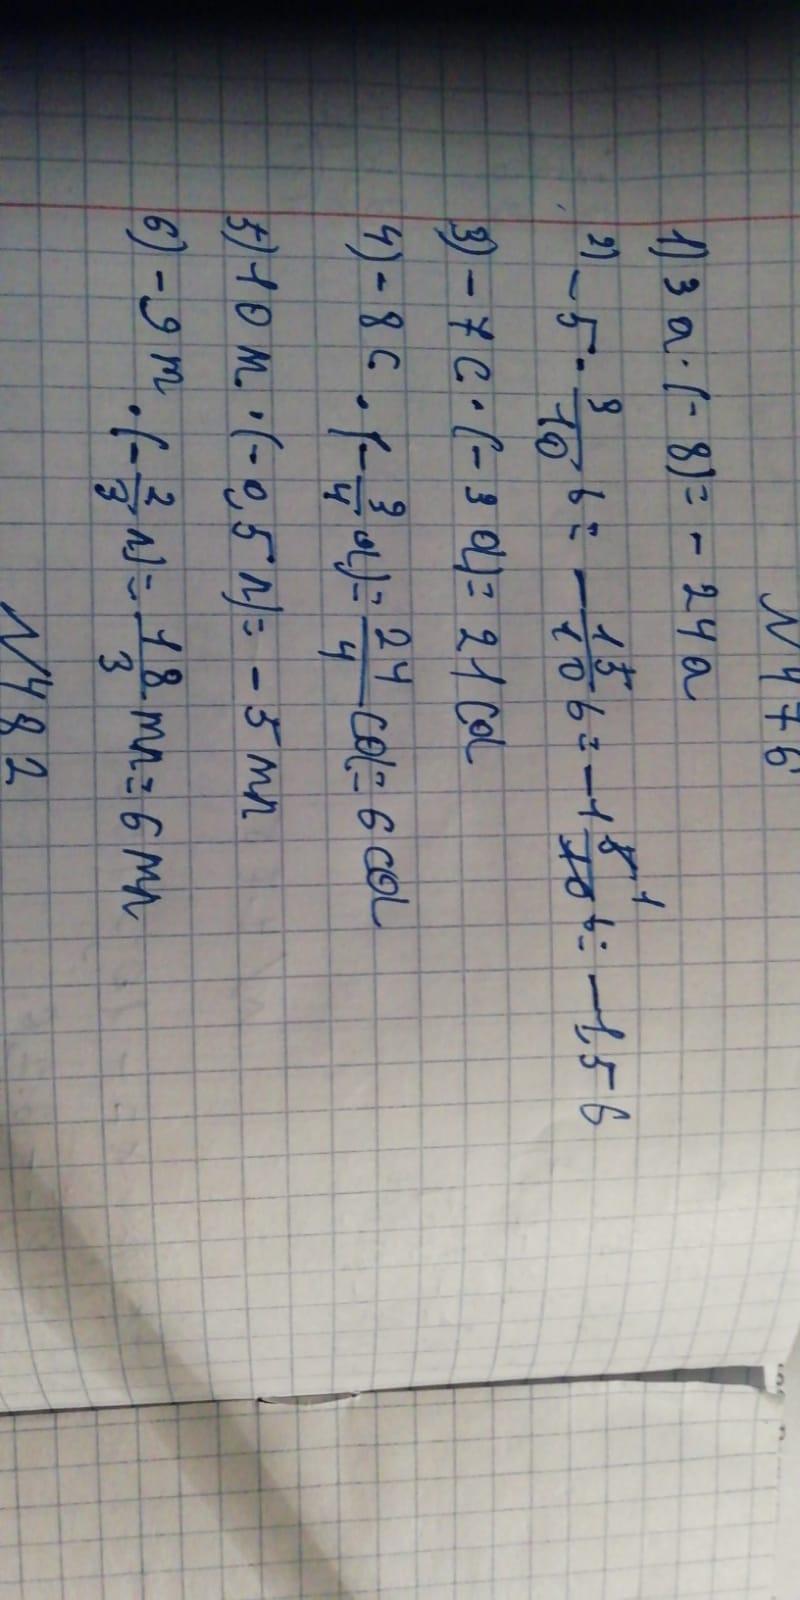 N 476
1) 3a·(-8)=-24a
2) -5·3/10 b=-15/10 b=-1 5/10 b=-1,5b
3) -7c·(-3d)=21cd
4) -8c·(-3/4 d)=24/4 cd=6cd
5) 10m·(-0,5n)=-5mn
6) -9m·(-2/3 n)=18/3 mn=6mn
N 482